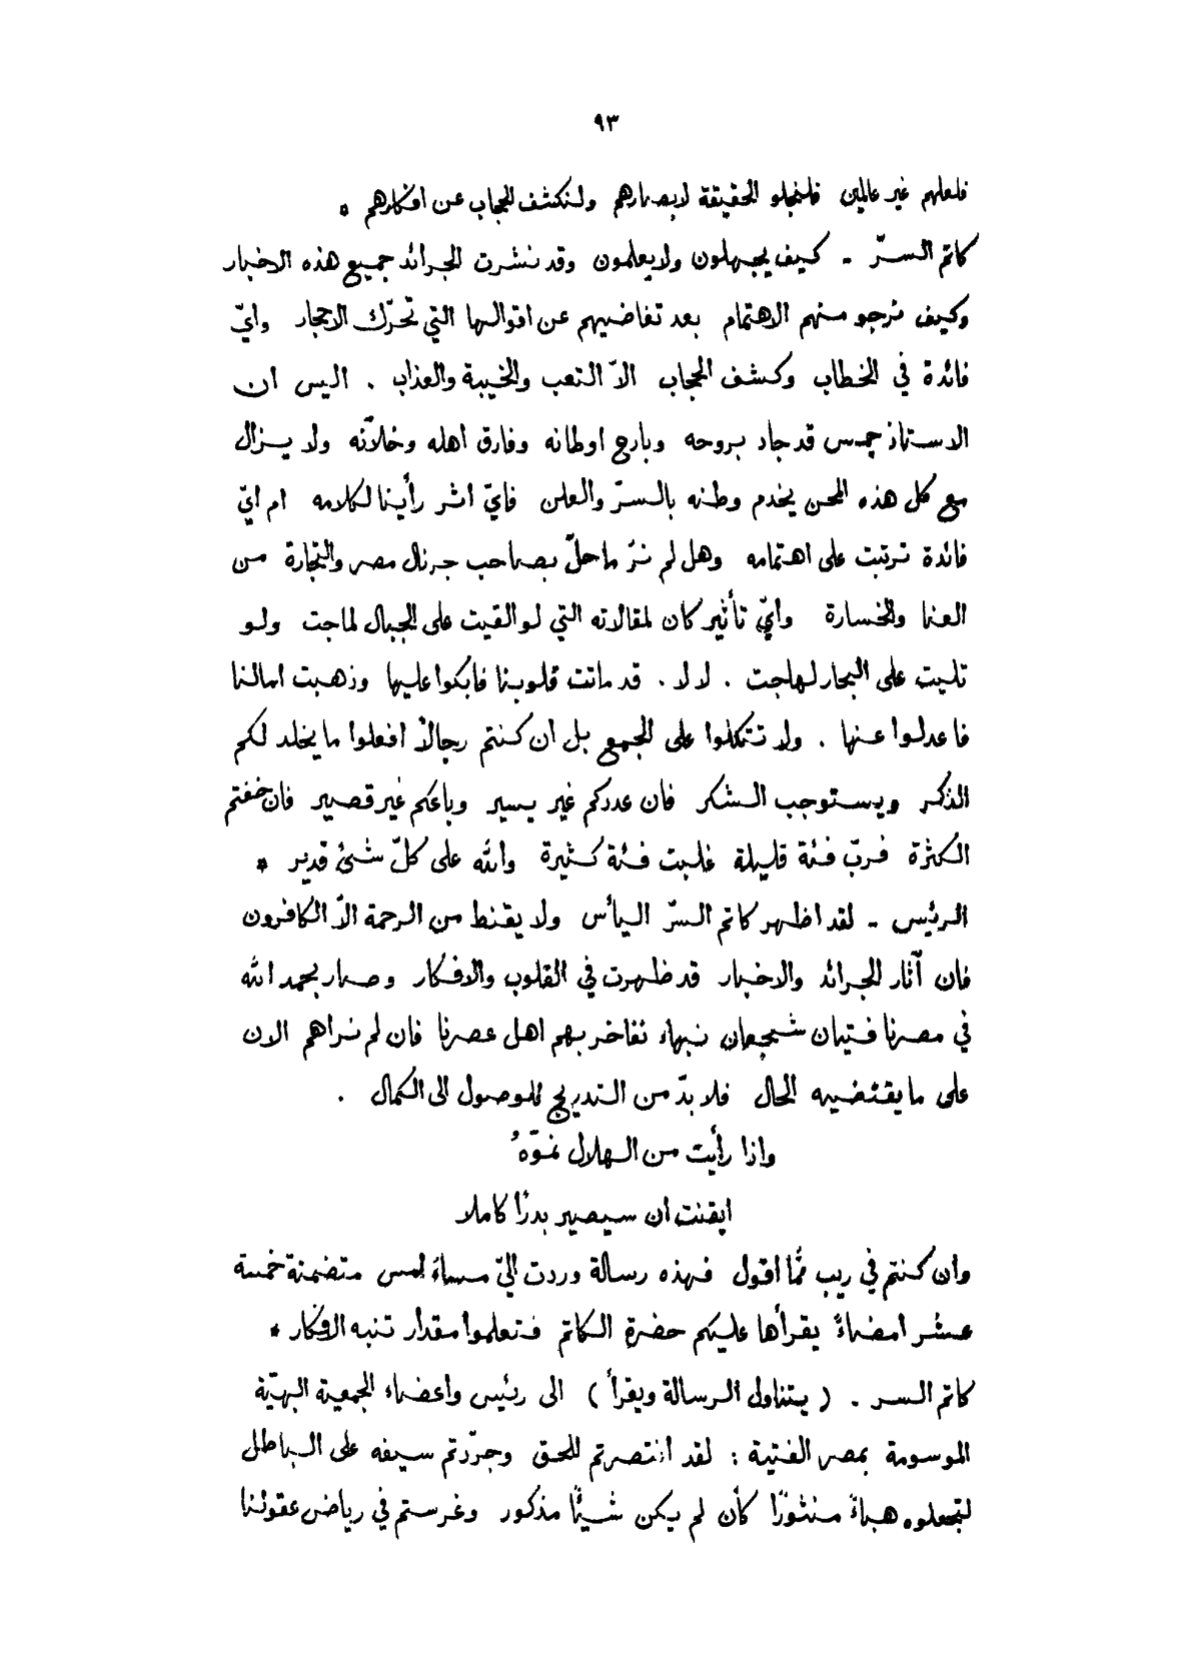 ٩٣
فلعلهم غير عالمين فلنجلو الحقيقة لابصارهم ولنكشف الحجاب عن افكارهم *
كاتم السرّ - كيف يجهلون ولا يعلمون وقد نشرت الجرائد جميع هذه الاخبار
وكيف نرجو منهم الاهتمام بعد تغاضيهم عن اقوالها التي تحرّك الاحجار وايّ
فائدة في الخطاب وكشف الحجاب الاّ التعب والخيبة والعذاب . اليس ان
الاستاذ جمس قد جاد بروحه وبارح اوطانه وفارق اهله وخلاّنه ولا يزال
مع كل هذه المحن يخدم وطنه بالسرّ والعلن فايّ اثر رأينا لكلامه ام ايّ
فائدة ترتبت على اهتمامه وهل لم نرَ ما حلّ بصاحب جرنال مصر والتجارة من
العنا والخسارة وايّ تأثير كان لمقالاته التي لو القيت على الجبال لماجت ولو
تليت على البحار لهاجت . لا لا . قد ماتت قلوبنا فابكوا عليها وذهبت امالنا
فاعدلوا عنها . ولا تتكلوا على الجمع بل ان كنتم رجالاً افعلوا ما يخلد لكم
الذكر ويستوجب الشكر فان عددكم غير يسير وباعكم غير قصير فان خفتم
الكثرة فربّ فئة قليلة غلبت فئة كثيرة والله على كلّ شئ قدير *
الرئيس - لقد اظهر كاتم السرّ اليأس ولا يقنط من الرحمة الاّ الكافرون
فان آثار الجرائد والاخبار قد ظهرت في القلوب والافكار وصار بحمد الله
في مصرنا فتيان شجعان نبهاء نفاخر بهم اهل عصرنا فان لم نراهم الان
على ما يقتضيه الحال فلا بدّ من التدريج للوصول الى الكمال .
واذا رأيت من الهلال نموّهُ
ايقنت ان سيصير بدرًا كاملا
وان كنتم في ريب ممّا اقول فهذه رسالة وردت اليّ مساءَ امس متضمنة خمسة
عشر امضاءً يقرأها عليكم حضرة الكاتم فتعلموا مقدار تنبه الافكار *
كاتم السر . ( يتناول الرسالة ويقرأ ) الى رئيس واعضاء الجمعية البهيّة
الموسومة بمصر الفتية : لقد انتصرتم للحق وجرّدتم سيفه على الباطل
لتجعلوه هباءً منثورًا كأن لم يكن شيئًا مذكور وغرستم في رياض عقولنا